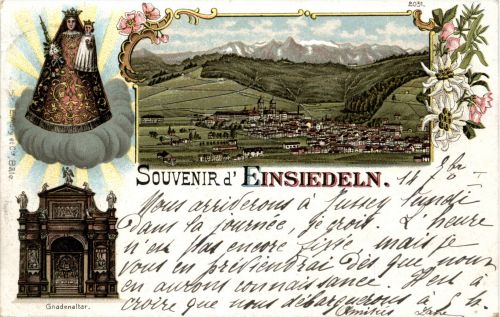 2031.
SOUVENIR d' EINSIEDELN.
14
Nous arriderons à Lundi
dans la journée, je crois. L'heure
n'est pas encore fixée, mais je
vous en préviendrai dès que nous
en aurons connaissance. Il est à
croire que nous débarquerons à
Amitiés
Gnadenaltar.